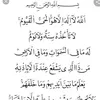 بسم الله الرحمن الرحيم
الله لا إله إلا هو الحي القيوم
لا تأخذه سنة ولا نوم
له ما في السموات وما في الأرض
من ذا الذي يشفع عنده إلا بإذنه
يعلم ما بين أيديهم وما خلفهم